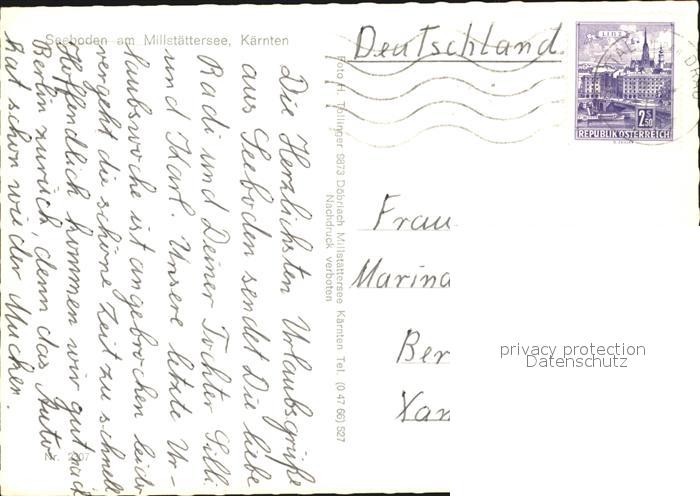 Seeboden am Millstättersee, Kärnten
Die Herzlichsten Urlaubsgrüße
aus Seeboden sendet Die liebe
Radi und Deiner Tochter Silli
und Karl. Unsere letzte Ur-
laubswoche ist angebrochen leider
vergeht die schöne Zeit zu schnell
Hoffendlich kommen wir gut nach
Berlin zurück, denn das Auto
hat schon wieder Mucken.
Nr. 2/97
Foto H. Tollinger 9873 Döbriach Millstättersee Kärnten Tel. (0 47 66) 527
Nachdruck verboten
Deutschland.
LINZ
2 S 50
REPUBLIK ÖSTERREICH
Frau
Marina
Ber
Xan
privacy protection
Datenschutz